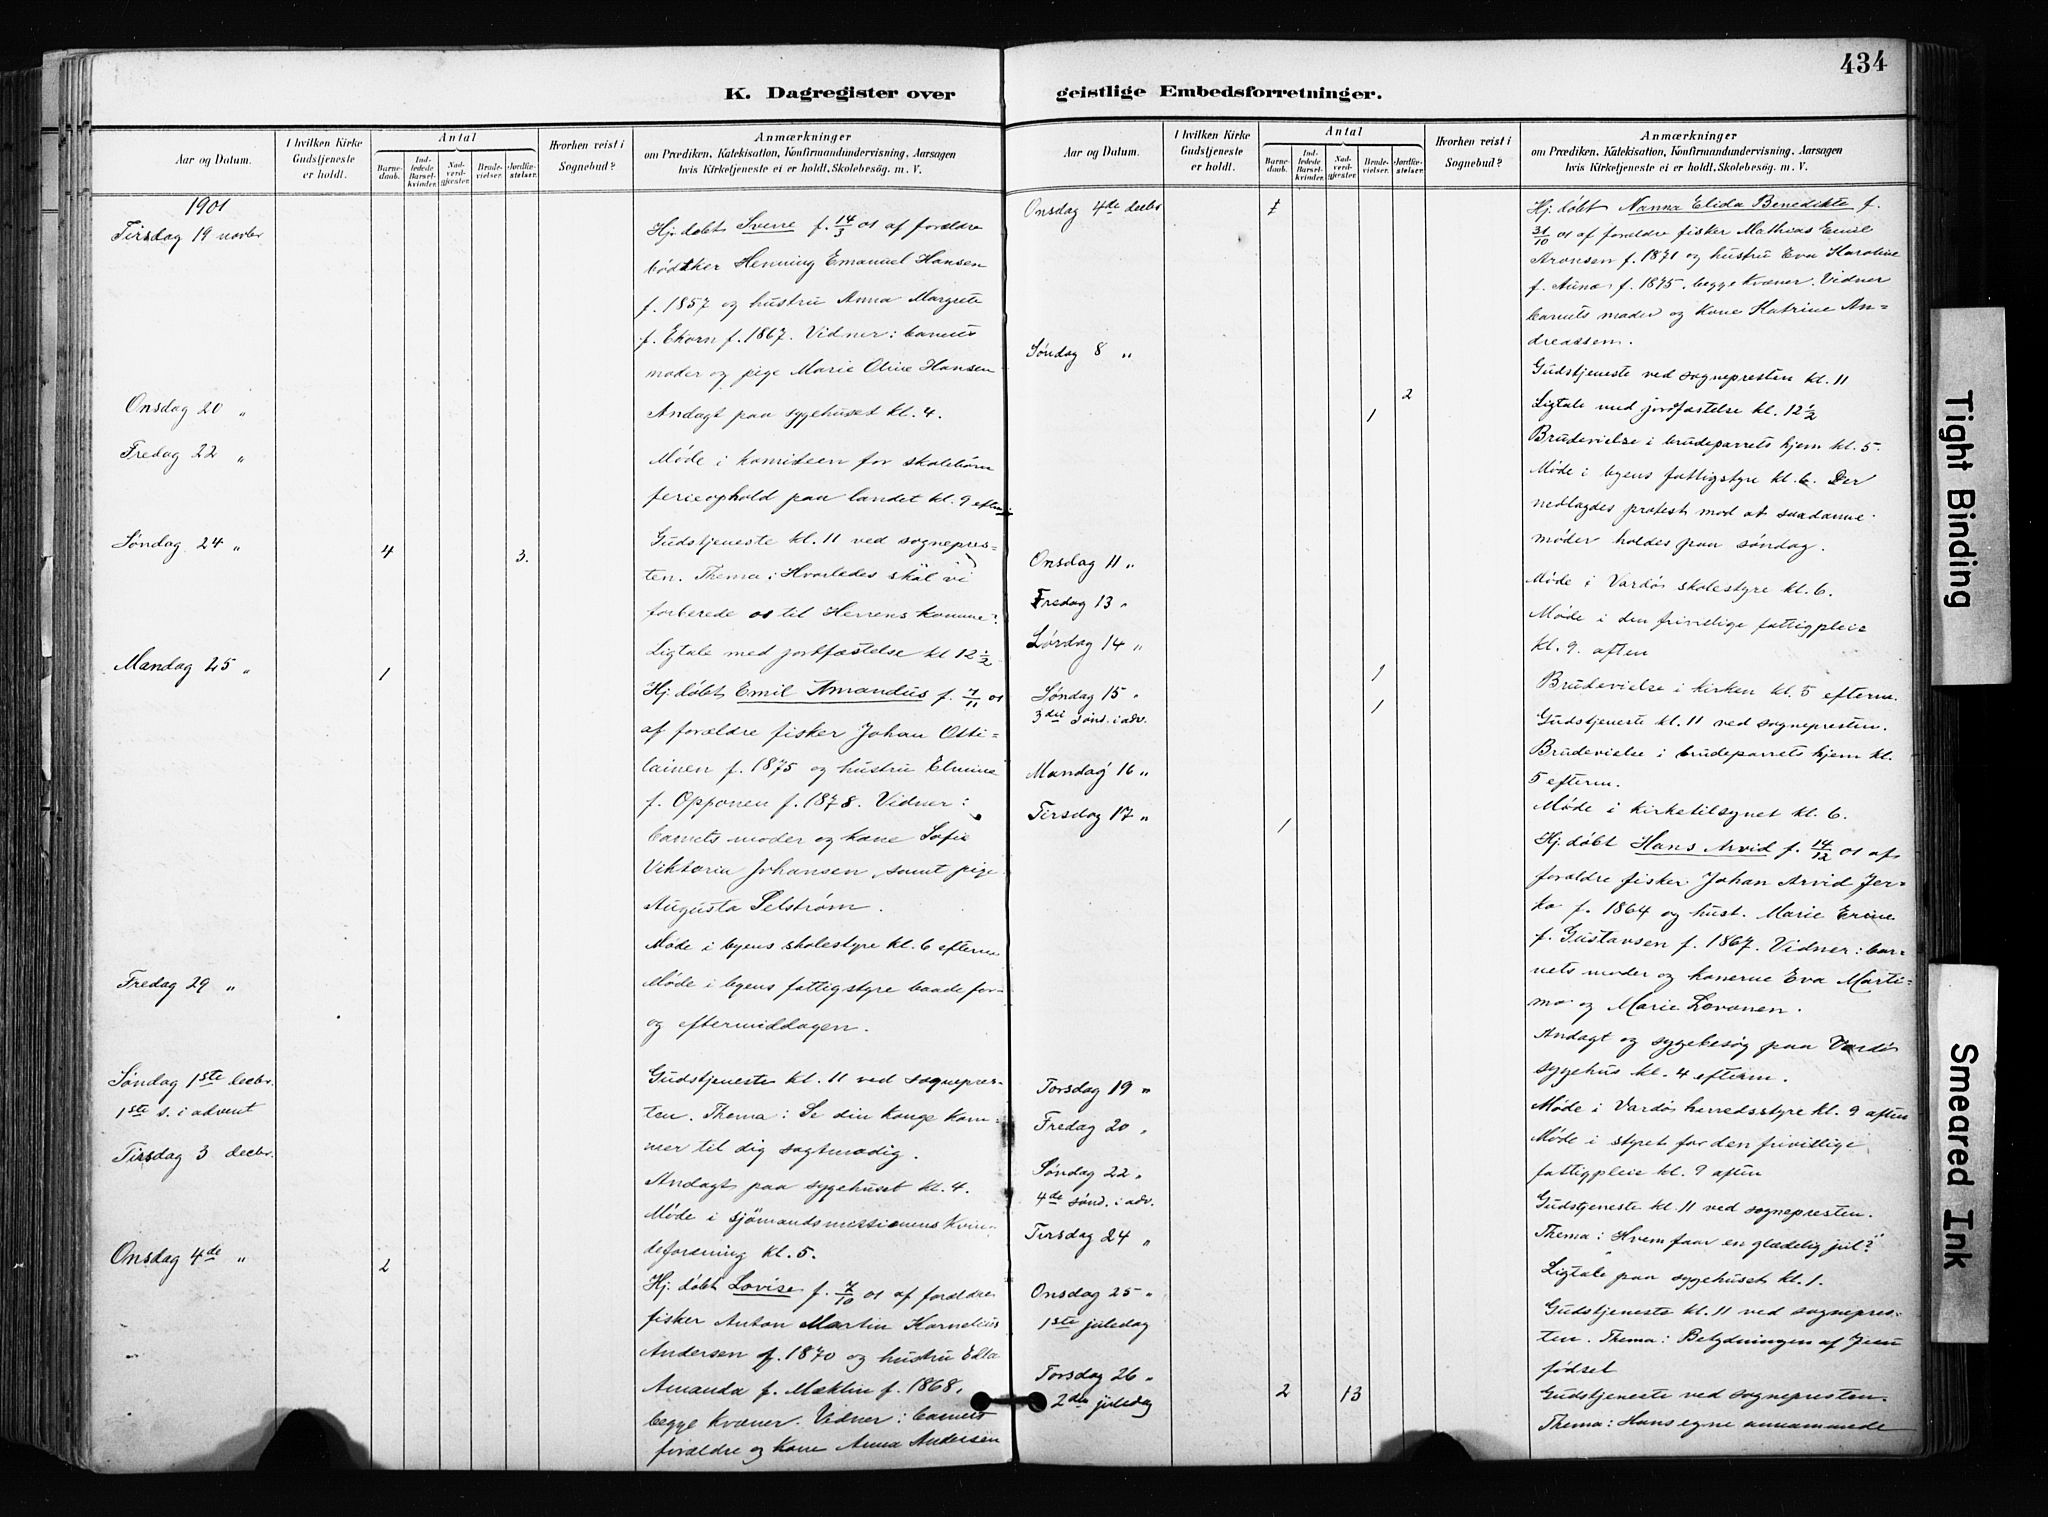 434
K. Dagregister over
geistlige Embedsforretninger.
Aar og Datum.
I hvilken Kirke
Gudstjeneste
er holdt.
Antal
Barne-
daab.
Ind-
ledede
Barsel-
kvinder.
Nad-
verd-
gjester.
Brude-
vielser.
Jordfæ-
stelser.
Hvorhen reist i
Sognebud?
Anmærkninger
om Prædiken, Katekisation, Konfirmandundervisning, Aarsagen
hvis Kirketjeneste ei er holdt, Skolebesøg. m. V.
1901
Tirsdag 19 novbr
Hj. døbt Sverre f. 14/3 01 af forældre
bødtker Henning Emanuel Hansen
f. 1857 og hustru Anna Margrete
f. Ekorn f. 1867. Vidner: barnets
moder og pige Marie Oline Hansen
Onsdag 20 „
Andagt paa sygehuset kl. 4.
Fredag 22 „
Møde i komiteen for skolebørn
ferieophold paa landet kl. 9 efterm
Søndag 24 „ 4 3.
Gudstjeneste kl. 11 ved sognepres-
ten. Thema: Hvorledes skal vi
forberede os til Herrens komme?
Ligtale med jordfæstelse kl 12 1/2
Mandag 25 „ 1
Hj. døbt Emil Amandus f. 7/11 01
af forældre fisker Johan Otti-
lainen f. 1875 og hustru Elmina
f. Opponen f. 1878. Vidner:
barnets moder og kone Sofie
Viktoria Johansen, samt pige
Augusta Selstrøm.
Møde i byens skolestyre kl. 6 efterm
Fredag 29 „
Møde i byens fattigstyre baade for-
og eftermiddagen.
Søndag 1ste decbr.
1ste s. i advent
Gudstjeneste kl. 11 ved sognepres-
ten. Thema: Se din konge kom-
mer til dig sagtmodig.
Tirsdag 3 decbr.
Andagt paa sygehuset kl. 4.
Møde i sjømandsmissionens kvin-
deforening kl. 5.
Onsdag 4de „ 2
Hj. døbt Lovise f. 7/10 01 af forældre
fisker Anton Martin Kornelius
Andersen f. 1870 og hustru Edla
Amanda f. Mæklin f. 1868,
begge kvæner. Vidner: barnets
forældre og kone Anna Andersen
Aar og Datum.
I hvilken Kirke
Gudstjeneste
er holdt.
Antal
Barne-
daab.
Ind-
ledede
Barsel-
kvinder.
Nad-
verd-
gjester.
Brude-
vielser.
Jordfæ-
stelser.
Hvorhen reist i
Sognebud?
Anmærkninger
om Prædiken, Katekisation, Konfirmandundervisning, Aarsagen
hvis Kirketjeneste ei er holdt, Skolebesøg. m. V.
Onsdag 4de decbr
Hj. døbt Nanna Elida Benedikte f.
31/10 01 af forældre fisker Mathias Emil
Aronsen f. 1871 og hustru Eva Karoline
f. Auna f. 1875, begge kvæner. Vidner
barnets moder og kone Katrine An-
dreassen.
Søndag 8 „
Gudstjeneste ved sognepresten kl. 11
2
Ligtale med jordfæstelse kl. 12 1/2
1
Brudevielse i brudeparrets hjem kl. 5.
Møde i byens fattigstyre kl. 6. Der
nedlagdes protest mod at saadanne
møder holdes paa søndag.
Onsdag 11 „
Møde i Vardø skolestyre kl. 6.
Fredag 13 „
Møde i den frivilige fattigpleie
kl. 9. aften
Lørdag 14 „ 1
Brudevielse i kirken kl. 5 efterm.
Søndag 15 „ 1
3die sønd. i adv.
Gudstjeneste kl. 11 ved sognepresten.
Brudevielse i brudeparrets hjem kl.
5 efterm.
Mandag 16 „
Møde i kirketilsynet kl. 6.
Tirsdag 17 „ 1
Hj. døbt Hans Arvid f. 14/12 01 af
forældre fisker Johan Arvid Jer-
ko f. 1864 og hust. Marie Erine
f. Gustavsen f. 1867. Vidner: bar-
nets moder og konerne Eva Marti-
mo og Marie Lovonen.
Andagt og sygebesøg paa Vardø
sygehus kl. 4 efterm.
Torsdag 19 „
Møde i Vardø herredsstyre kl. 9 aften
Fredag 20 „
Møde i styret for den frivillige
fattigpleie kl. 9 aften
Søndag 22 „
4de sønd. i adv.
Gudstjeneste kl. 11 ved sognepresten.
Thema: „Hvem faar en glædelig jul?"
Tirsdag 24 „
Ligtale paa sygehuset kl. 1.
Onsdag 25 „
1ste juledag
Gudstjeneste kl. 11 ved sognepres-
ten. Thema: Betydningen af Jesu
fødsel
Torsdag 26 „
2den juledag 2 13
Gudstjeneste ved sognepresten.
Thema: Hans egne annammede
Tight Binding
Smeared Ink